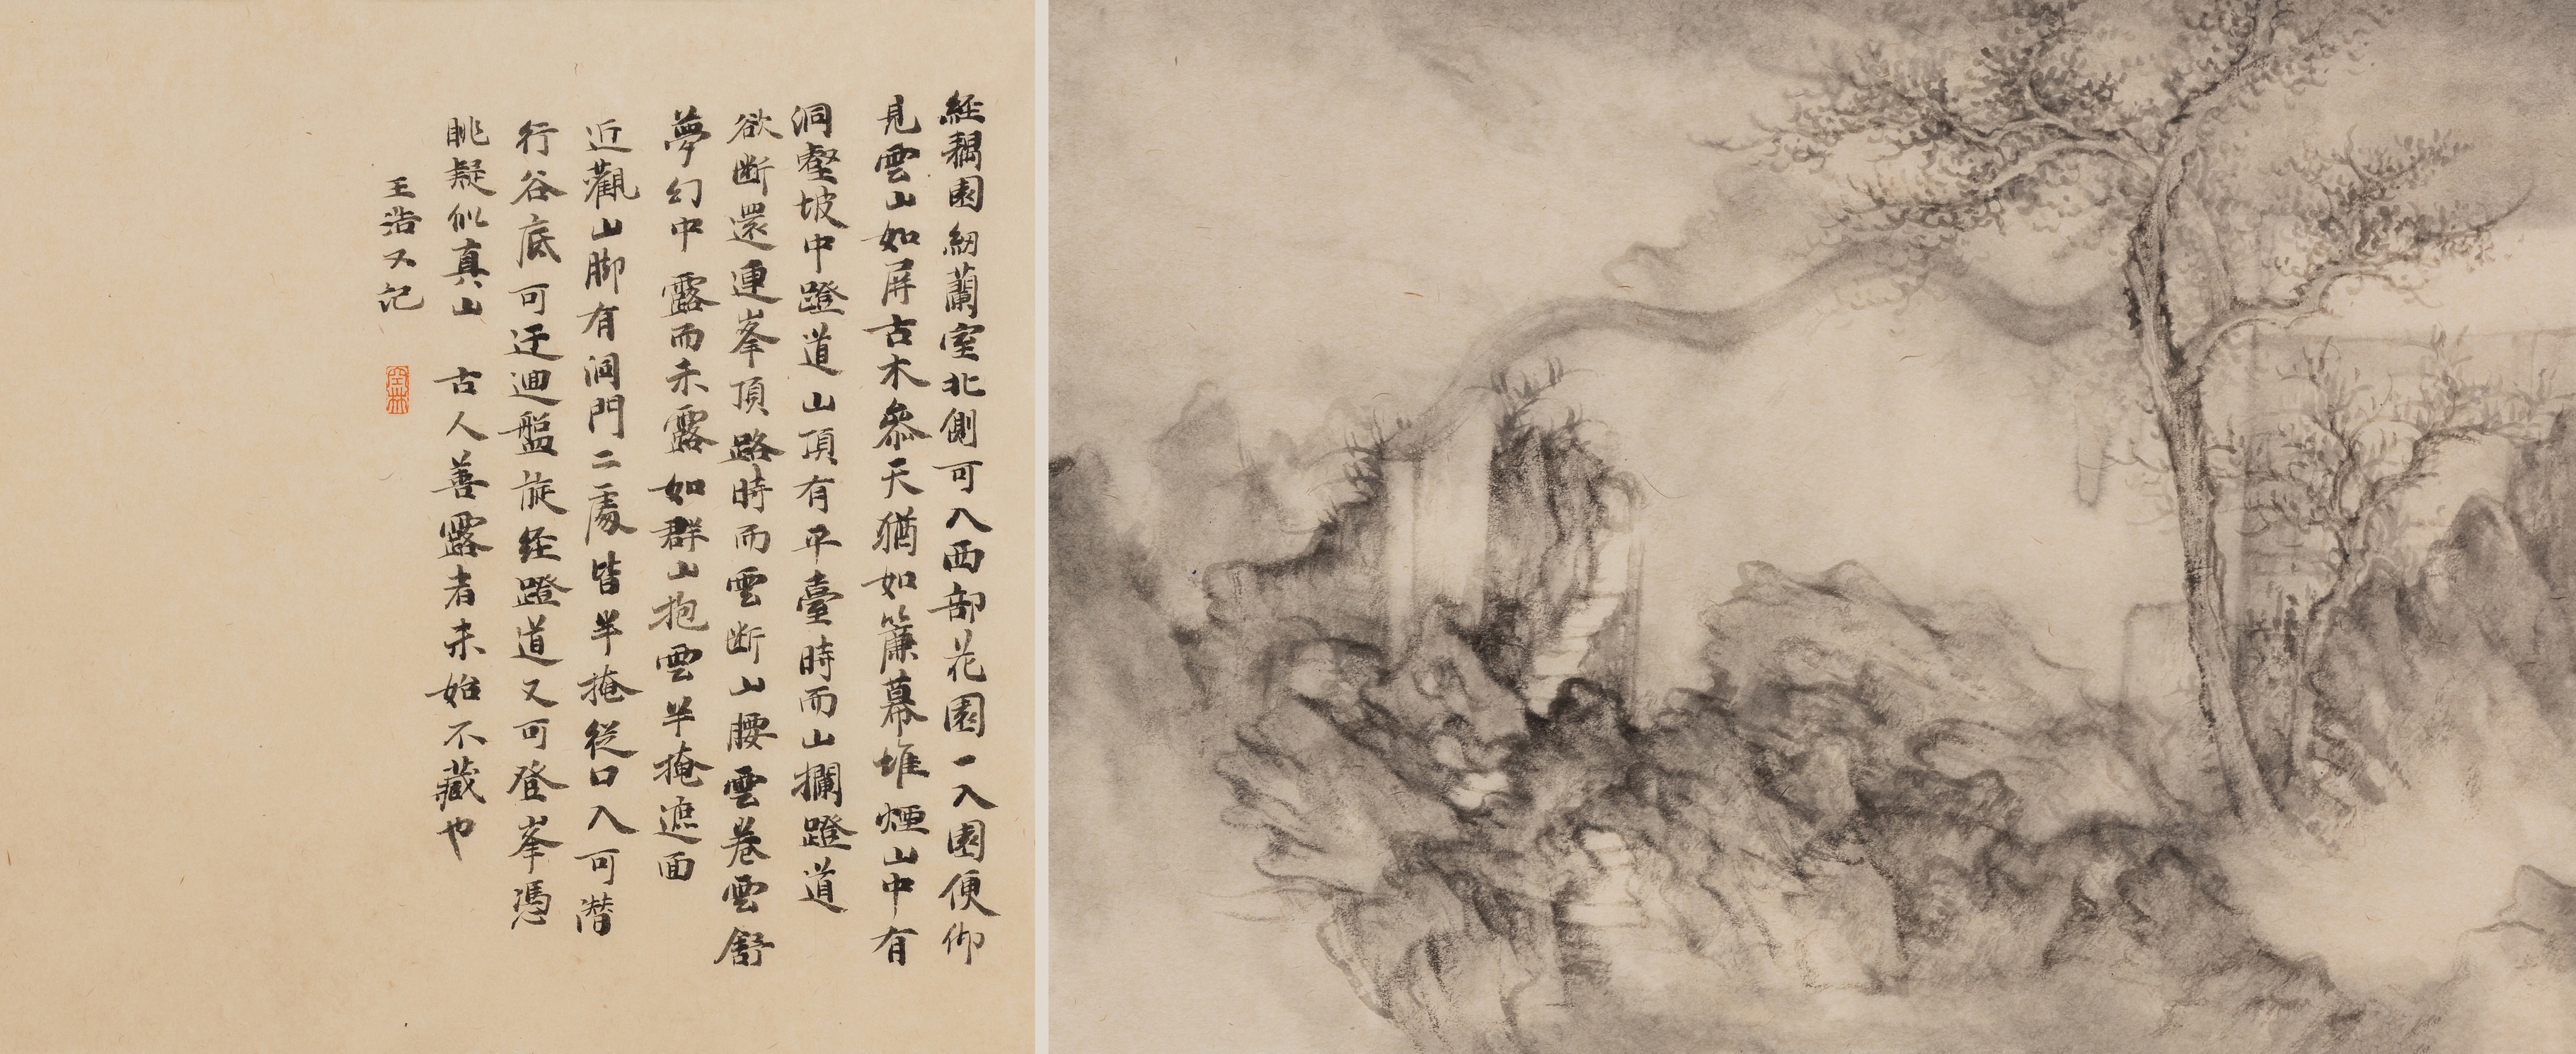 經耦園紉蘭室北側可入西部花園一入園便仰
見雲山如屏古木參天猶如簾幕堆煙山中有
洞壑坡中蹬道山頂有平臺時而山攔蹬道
欲断還連峯頂路時而雲断山腰雲卷雲舒
夢幻中露而未露如群山抱雲半掩遮面
近觀山脚有洞門二處皆半掩從口入可潜
行谷底可迂迴盤旋經蹬道又可登峯憑
眺疑似真山 古人善露者未始不藏也
王浩又記